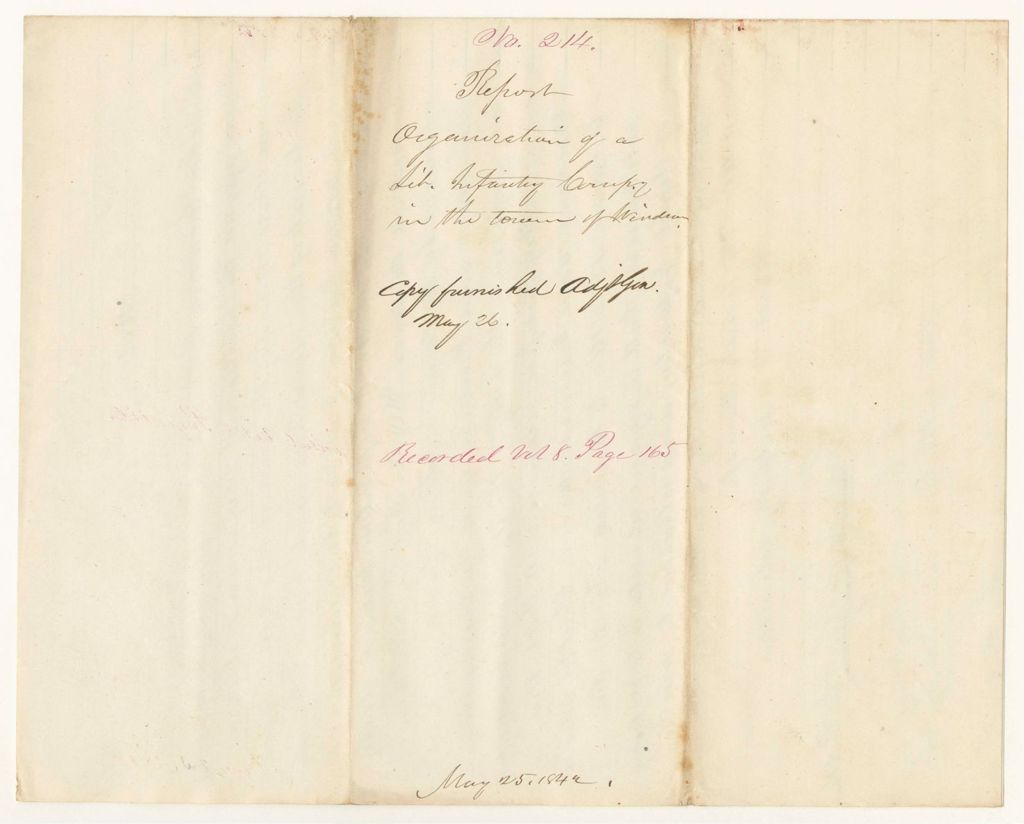 No. 214.
Report
Organization of a
Lit. Infantry Compy
in the town of Windsor
Copy furnished Adjt Gen.
May 26.
Recorded Vol 8. Page 165
May 25. 1842.